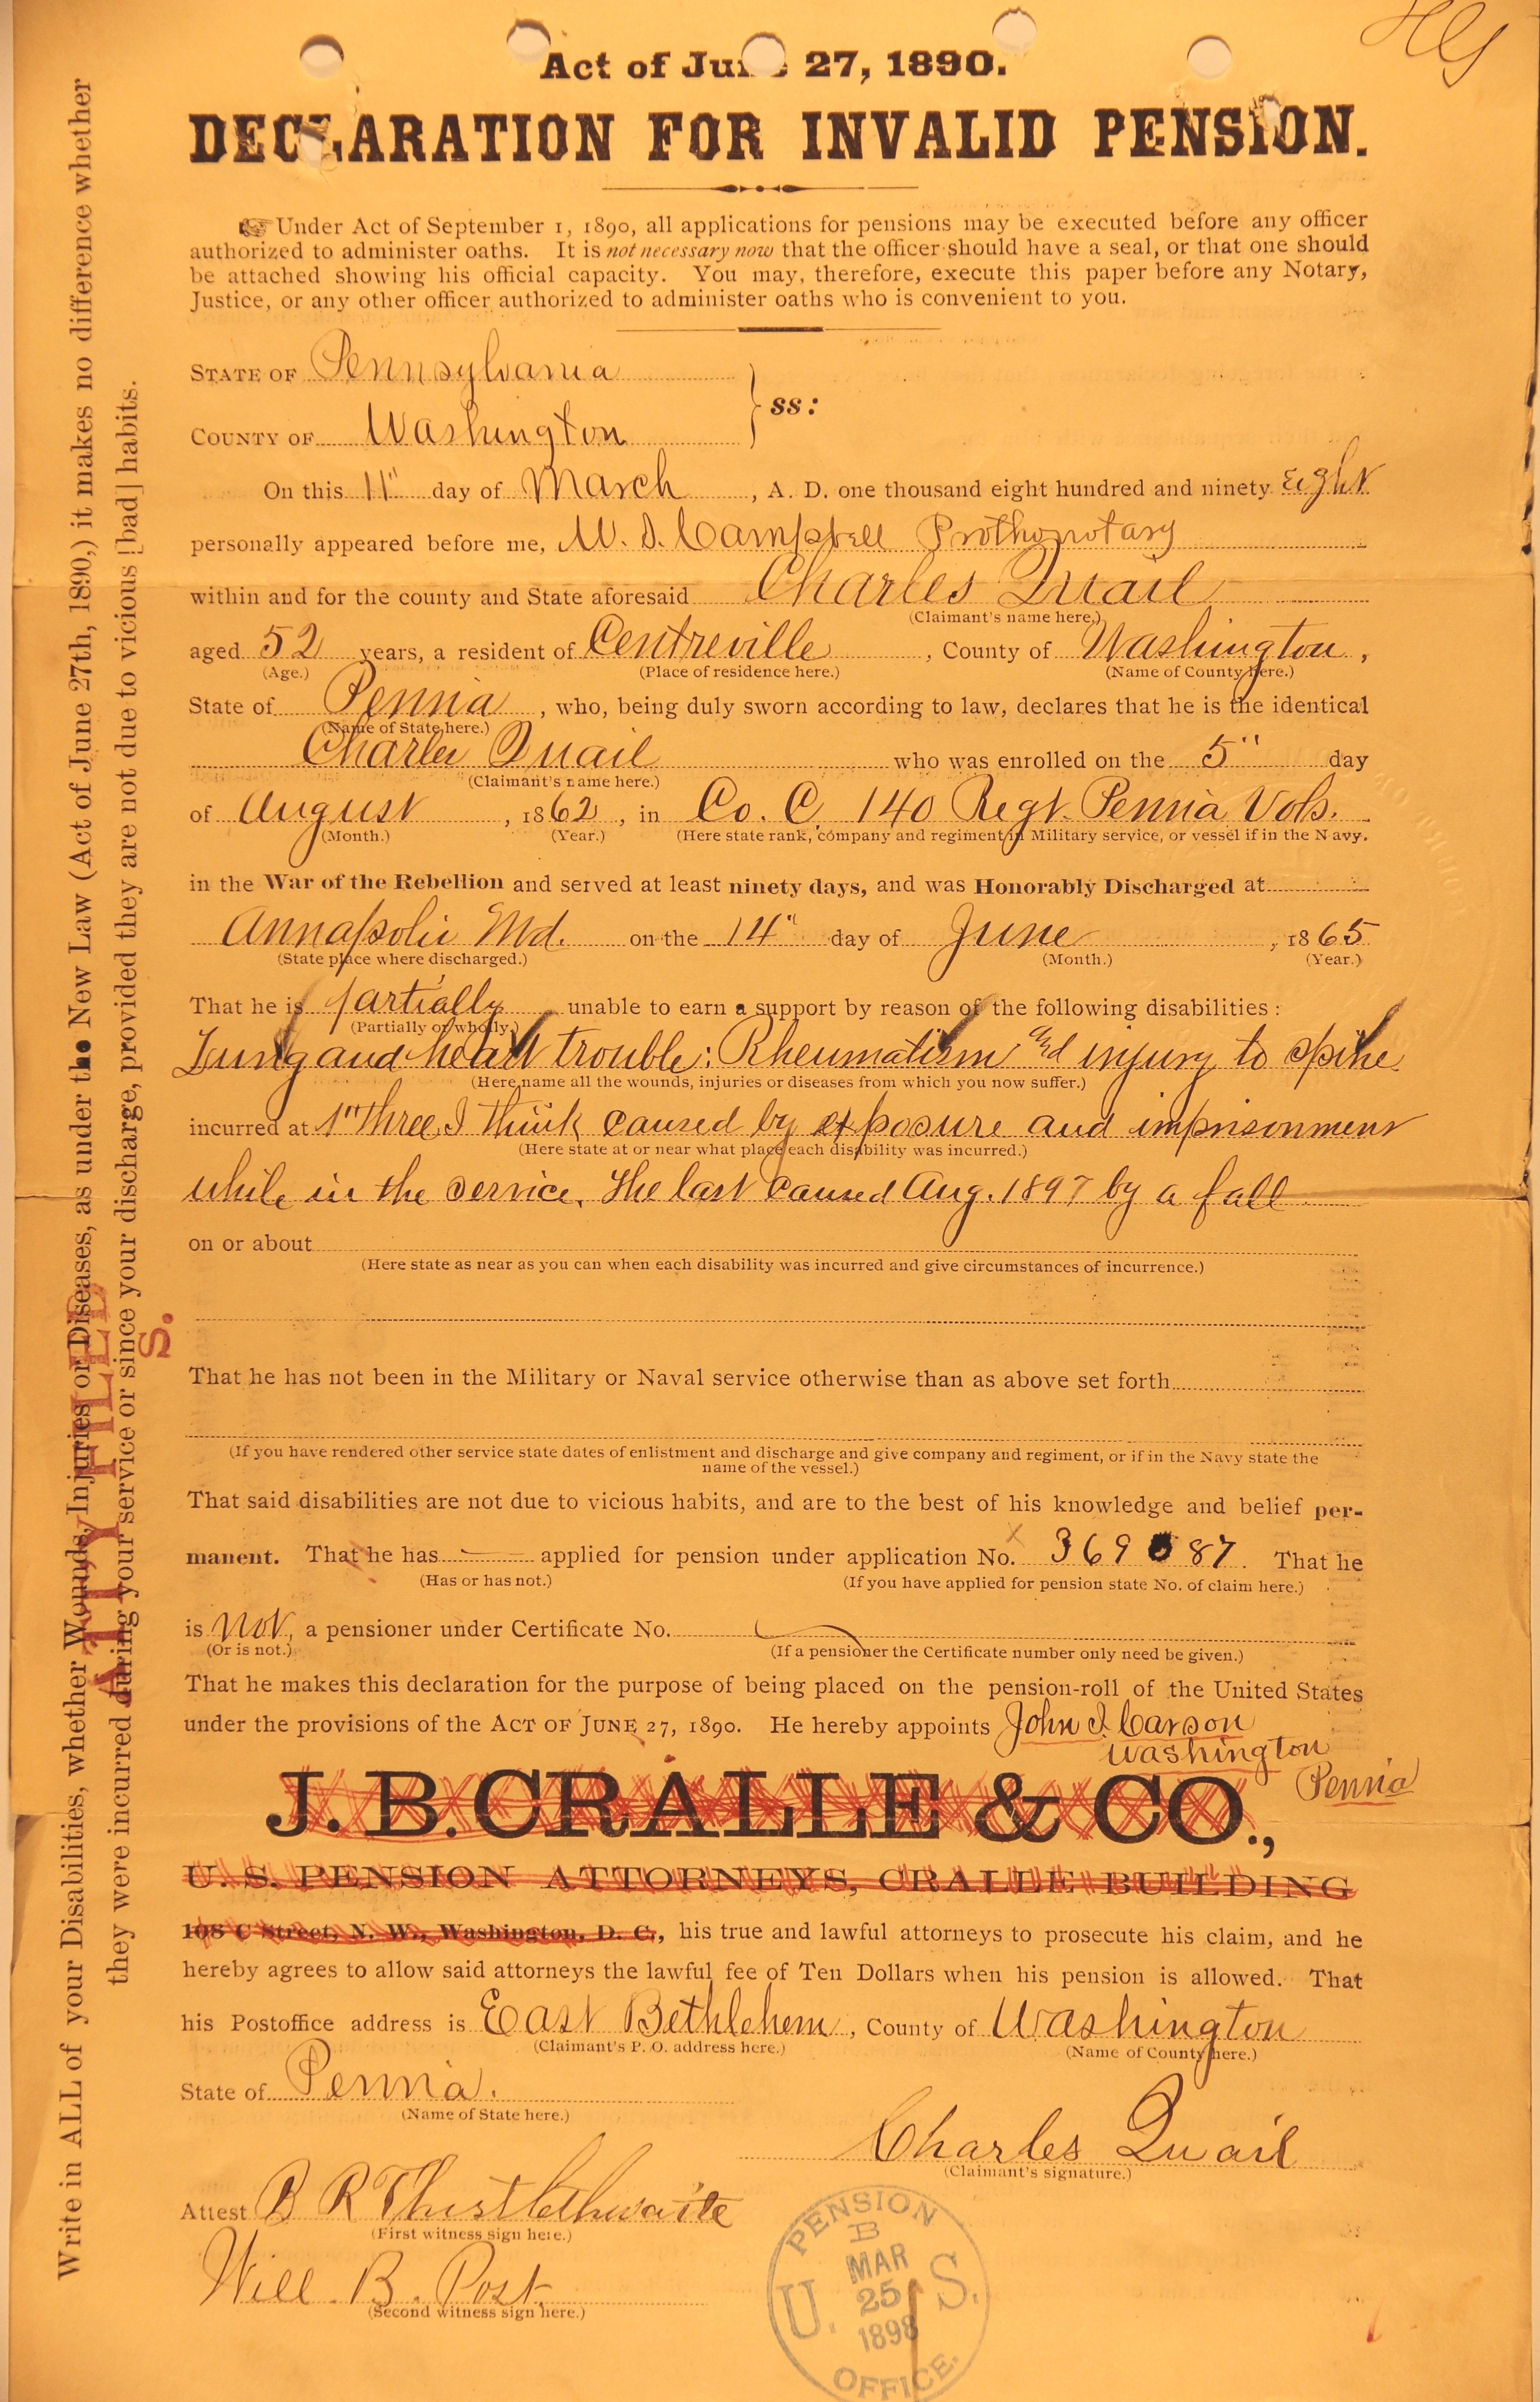 HG
Act of June 27, 1890.
DECLARATION FOR INVALID PENSION.
Under Act of September 1, 1890, all applications for pensions may be executed before any officer
authorized to administer oaths. It is not necessary now that the officer should have a seal, or that one should
be attached showing his official capacity. You may, therefore, execute this paper before any Notary,
Justice, or any other officer authorized to administer oaths who is convenient to you.
STATE OF Pennsylvania
COUNTY OF Washington
} ss:
On this 11" day of March, A. D. one thousand eight hundred and ninety eight
personally appeared before me, W. D. Campbell Prothonotary
within and for the county and State aforesaid Charles Quail
(Claimant's name here.)
aged 52 years, a resident of Centreville, County of Washington,
(Age.) (Place of residence here.) (Name of County here.)
State of Penna, who, being duly sworn according to law, declares that he is the identical
(Name of State here.)
Charles Quail who was enrolled on the 5" day
(Claimant's name here.)
of August, 1862, in Co. C, 140 Regt. Penna Vols.
(Month.) (Year.) (Here state rank, company and regiment in Military service, or vessel if in the Navy.
in the War of the Rebellion and served at least ninety days, and was Honorably Discharged at
Annapolis Md. on the 14" day of June, 1865
(State place where discharged.) (Month.) (Year.)
That he is partially unable to earn a support by reason of the following disabilities:
(Partially or wholly.)
Lung and heart trouble: Rheumatism and injury to spine
(Here name all the wounds, injuries or diseases from which you now suffer.)
incurred at 1st three I think caused by exposure and imprisonment
(Here state at or near what place each disability was incurred.)
while in the service. The last caused Aug. 1897 by a fall
on or about
(Here state as near as you can when each disability was incurred and give circumstances of incurrence.)
That he has not been in the Military or Naval service otherwise than as above set forth
(If you have rendered other service state dates of enlistment and discharge and give company and regiment, or if in the Navy state the
name of the vessel.)
That said disabilities are not due to vicious habits, and are to the best of his knowledge and belief per-
manent. That he has — applied for pension under application No. x 369087. That he
(Has or has not.) (If you have applied for pension state No. of claim here.)
is not, a pensioner under Certificate No.
(Or is not.) (If a pensioner the Certificate number only need be given.)
That he makes this declaration for the purpose of being placed on the pension-roll of the United States
under the provisions of the ACT OF JUNE 27, 1890. He hereby appoints John I. Carson
Washington
Penna
J. B. CRALLE & CO.,
U. S. PENSION ATTORNEYS, CRALLE BUILDING
108 C Street, N. W., Washington, D. C., his true and lawful attorneys to prosecute his claim, and he
hereby agrees to allow said attorneys the lawful fee of Ten Dollars when his pension is allowed. That
his Postoffice address is East Bethlehem, County of Washington
(Claimant's P. O. address here.) (Name of County here.)
State of Penna.
(Name of State here.)
Charles Quail
(Claimant's signature.)
Attest B R Thistlethwaite
(First witness sign here.)
Will. B. Post
(Second witness sign here.)
PENSION
B
MAR
25
1898
U. S.
OFFICE.
Write in ALL of your Disabilities, whether Wounds, Injuries or Diseases, as under the New Law (Act of June 27th, 1890,) it makes no difference whether
they were incurred during your service or since your discharge, provided they are not due to vicious [bad] habits.
ATTY FILED
S.